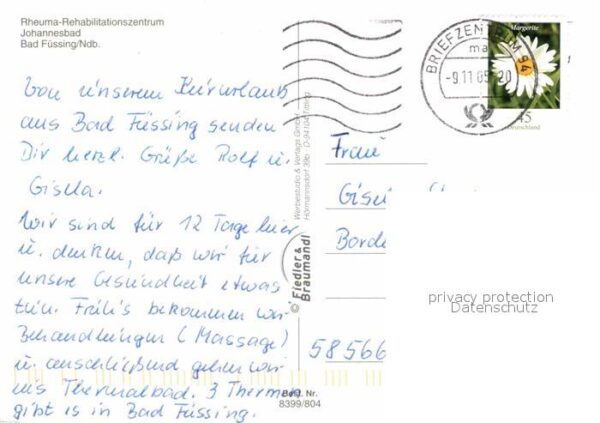 Rheuma-Rehabilitationszentrum
Johannesbad
Bad Füssing/Ndb.
Von unserem Kururlaub
aus Bad Füssing senden
Dir herzl. Grüße Rolf u.
Gisela.
Wir sind für 12 Tage hier
u. denken, daß wir für
unsere Gesundheit etwas
tun. Früh's bekommen wir
Behandlungen (Massage)
u. anschließend gehen wir
ins Thermalbad. 3 Thermen
gibt is in Bad Füssing.
Werbestudio & Verlags GmbH
© Fiedler &
Braumandl
Best. Nr.
8399/804
BRIEFZENTRUM 94
ma
-9.11.05-20
Margerite
45
Deutschland
Frau
Gise
Borde
58566
privacy protection
Datenschutz